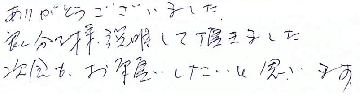 ありがとうございました
充分な様、説明して頂きました
次回も、お願いしたいと思います